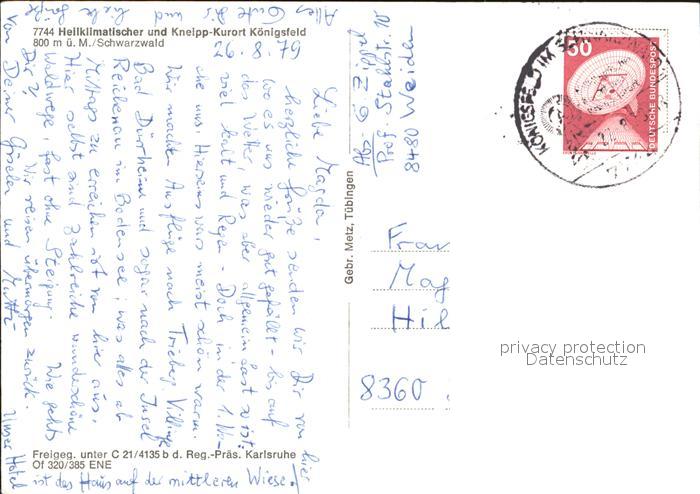 7744 Heilklimatischer und Kneipp-Kurort Königsfeld
800 m ü. M./Schwarzwald
26. 8. 79
Liebe Magda,
herzliche Grüße senden wir Dir von hier
wo es uns wieder gut gefällt - bis auf
das Wetter, was aber allgemein fast so ist:
viel kalt und Regen - Doch in der 1. Wo-
che uns Hierseins wars meist schön warm.
Wir machten Ausflüge nach Triberg, Villingen
Bad Dürrheim und sogar nach der Insel
Reichenau im Bodensee; was alles ab
Mittags zu erreichen ist von hier aus.
Hier selbst sind zahlreiche wunderschöne
Waldwege, fast ohne Steigung. Wie gehts
Dir? Wir reisen übermorgen zurück.
Von Deiner Gisela und Mutti
Alles Gute Dir und liebe Grüße
Unser Hotel
ist das Haus auf der mittleren Wiese.
Freigeg. unter C 21/4135 b d. Reg.-Präs. Karlsruhe
Of 320/385 ENE
Gebr. Metz, Tübingen
Abs: G.
8480 Weiden
Frau
Mag
Hil
8360
50
DEUTSCHE BUNDESPOST
KÖNIGSFELD IM SCHWARZWALD
privacy protection
Datenschutz